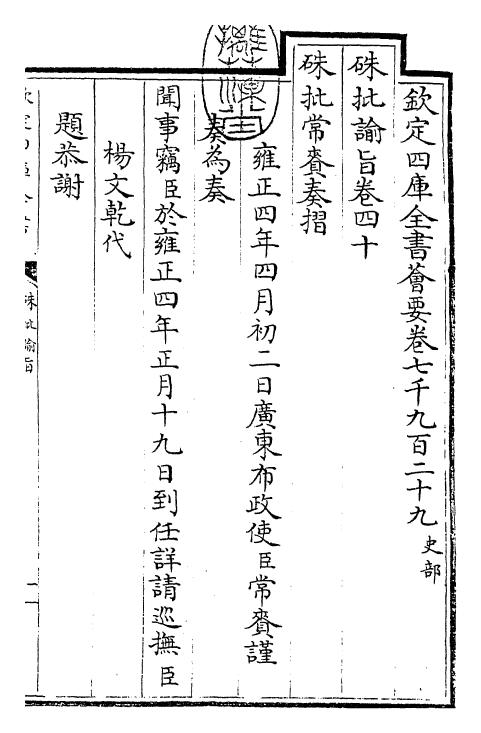 欽定四庫全書薈要卷七千九百二十九 史部
硃批諭旨卷四十
硃批常賚奏摺
雍正四年四月初二日廣東布政使臣常賚謹
奏為奏
聞事竊臣於雍正四年正月十九日到任詳請巡撫臣
楊文乾代
題恭謝
硃批諭旨
一